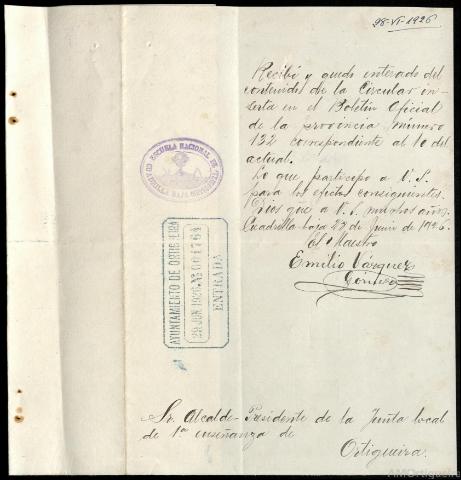 28-VI-1926
Recibí y quedo enterado del
contenido de la Circular in-
serta en el Boletin Oficial
de la provincia, número
132 correspondiente al 10 del
actual.
Lo que participo a V. S.
para los efectos consiguientes.
Dios gue a V. S. muchos años.
Cuadrilla-baja 23 de Junio de 1926.
El Maestro
Emilio Vázquez
ESCUELA NACIONAL DE
AYUNTAMIENTO DE ORTIGUEIRA
28 JUN 1926 * Nº 001764
ENTRADA
Sr. Alcalde-Presidente de la Junta local
de 1ª enseñanza de
Ortigueira.
AMOrtigueira